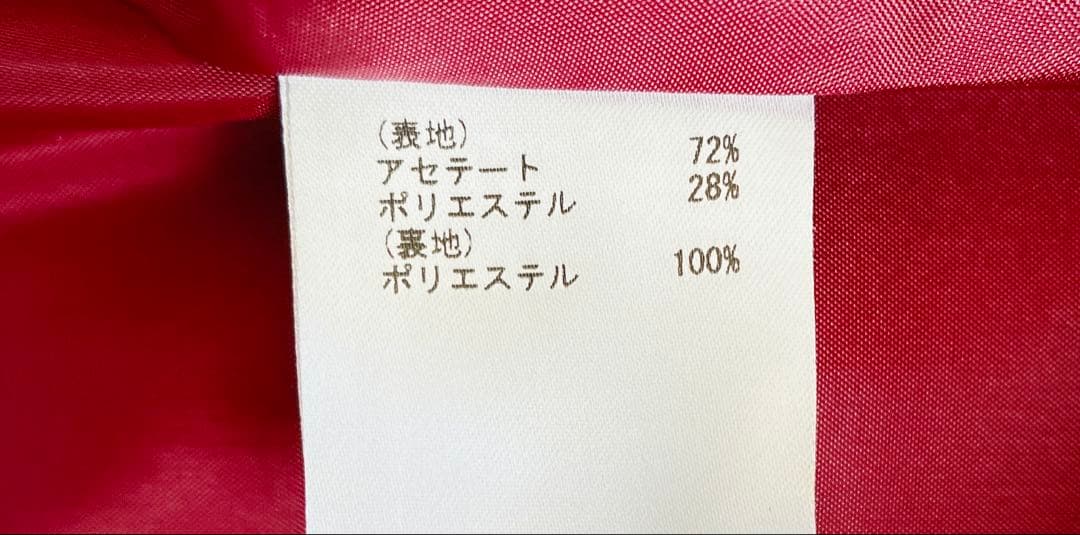 (表地)
アセテート 72%
ポリエステル 28%
(裏地)
ポリエステル 100%